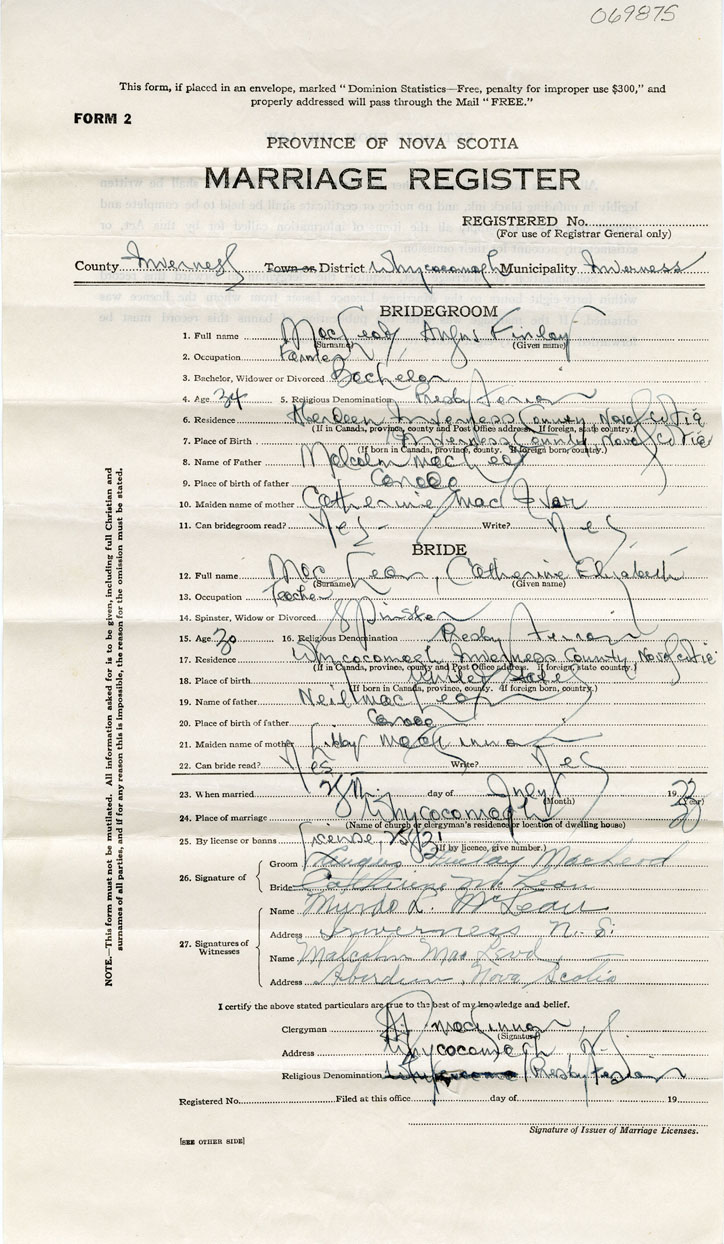 069875
This form, if placed in an envelope, marked "Dominion Statistics—Free, penalty for improper use $300," and
properly addressed will pass through the Mail "FREE."
FORM 2
PROVINCE OF NOVA SCOTIA
MARRIAGE REGISTER
REGISTERED No.
(For use of Registrar General only)
County Inverness Town or District Whycocomagh Municipality Inverness
BRIDEGROOM
1. Full name MacLeod, Angus Finlay
(Surname) (Given name)
2. Occupation Farmer
3. Bachelor, Widower or Divorced Bachelor
4. Age 34 5. Religious Denomination Presbyterian
6. Residence Aberdeen Inverness County Nova Scotia
(If in Canada, province, county and Post Office address. If foreign, state country.)
7. Place of Birth Inverness County, Nova Scotia
(If born in Canada, province, county. If foreign born, country.)
8. Name of Father Malcolm MacLeod
9. Place of birth of father Canada
10. Maiden name of mother Catherine MacIvor
11. Can bridegroom read? Yes - Write? Yes
BRIDE
12. Full name MacLean, Catherine Elizabeth
(Surname) (Given name)
13. Occupation Teacher
14. Spinster, Widow or Divorced Spinster
15. Age 30 16. Religious Denomination Presbyterian
17. Residence Whycocomagh Inverness County Nova Scotia
(If in Canada, province, county and Post Office address. If foreign, state country.)
18. Place of birth United States
(If born in Canada, province, county. If foreign born, country.)
19. Name of father Neil MacLean
20. Place of birth of father Canada
21. Maiden name of mother Libby MacKinnon
22. Can bride read? Yes Write? Yes
23. When married day of July 19
(Month) (Year)
24. Place of marriage Whycocomagh
(Name of church or clergyman's residence or location of dwelling house)
25. By license or banns License,
(If by licence, give number.)
26. Signature of
Groom Finlay MacLeod
Bride Catherine McLean
27. Signatures of Witnesses
Name L. McLean
Address Inverness N. S.
Name Malcolm MacLeod
Address Aberdeen, Nova Scotia
I certify the above stated particulars are true to the best of my knowledge and belief.
Clergyman MacKinnon
(Signature)
Address Whycocomagh, N.S.
Religious Denomination Presbyterian
Registered No. Filed at this office day of 19
Signature of Issuer of Marriage Licenses.
[SEE OTHER SIDE]
NOTE.—This form must not be mutilated. All information asked for is to be given, including full Christian and
surnames of all parties, and if for any reason this is impossible, the reason for the omission must be stated.